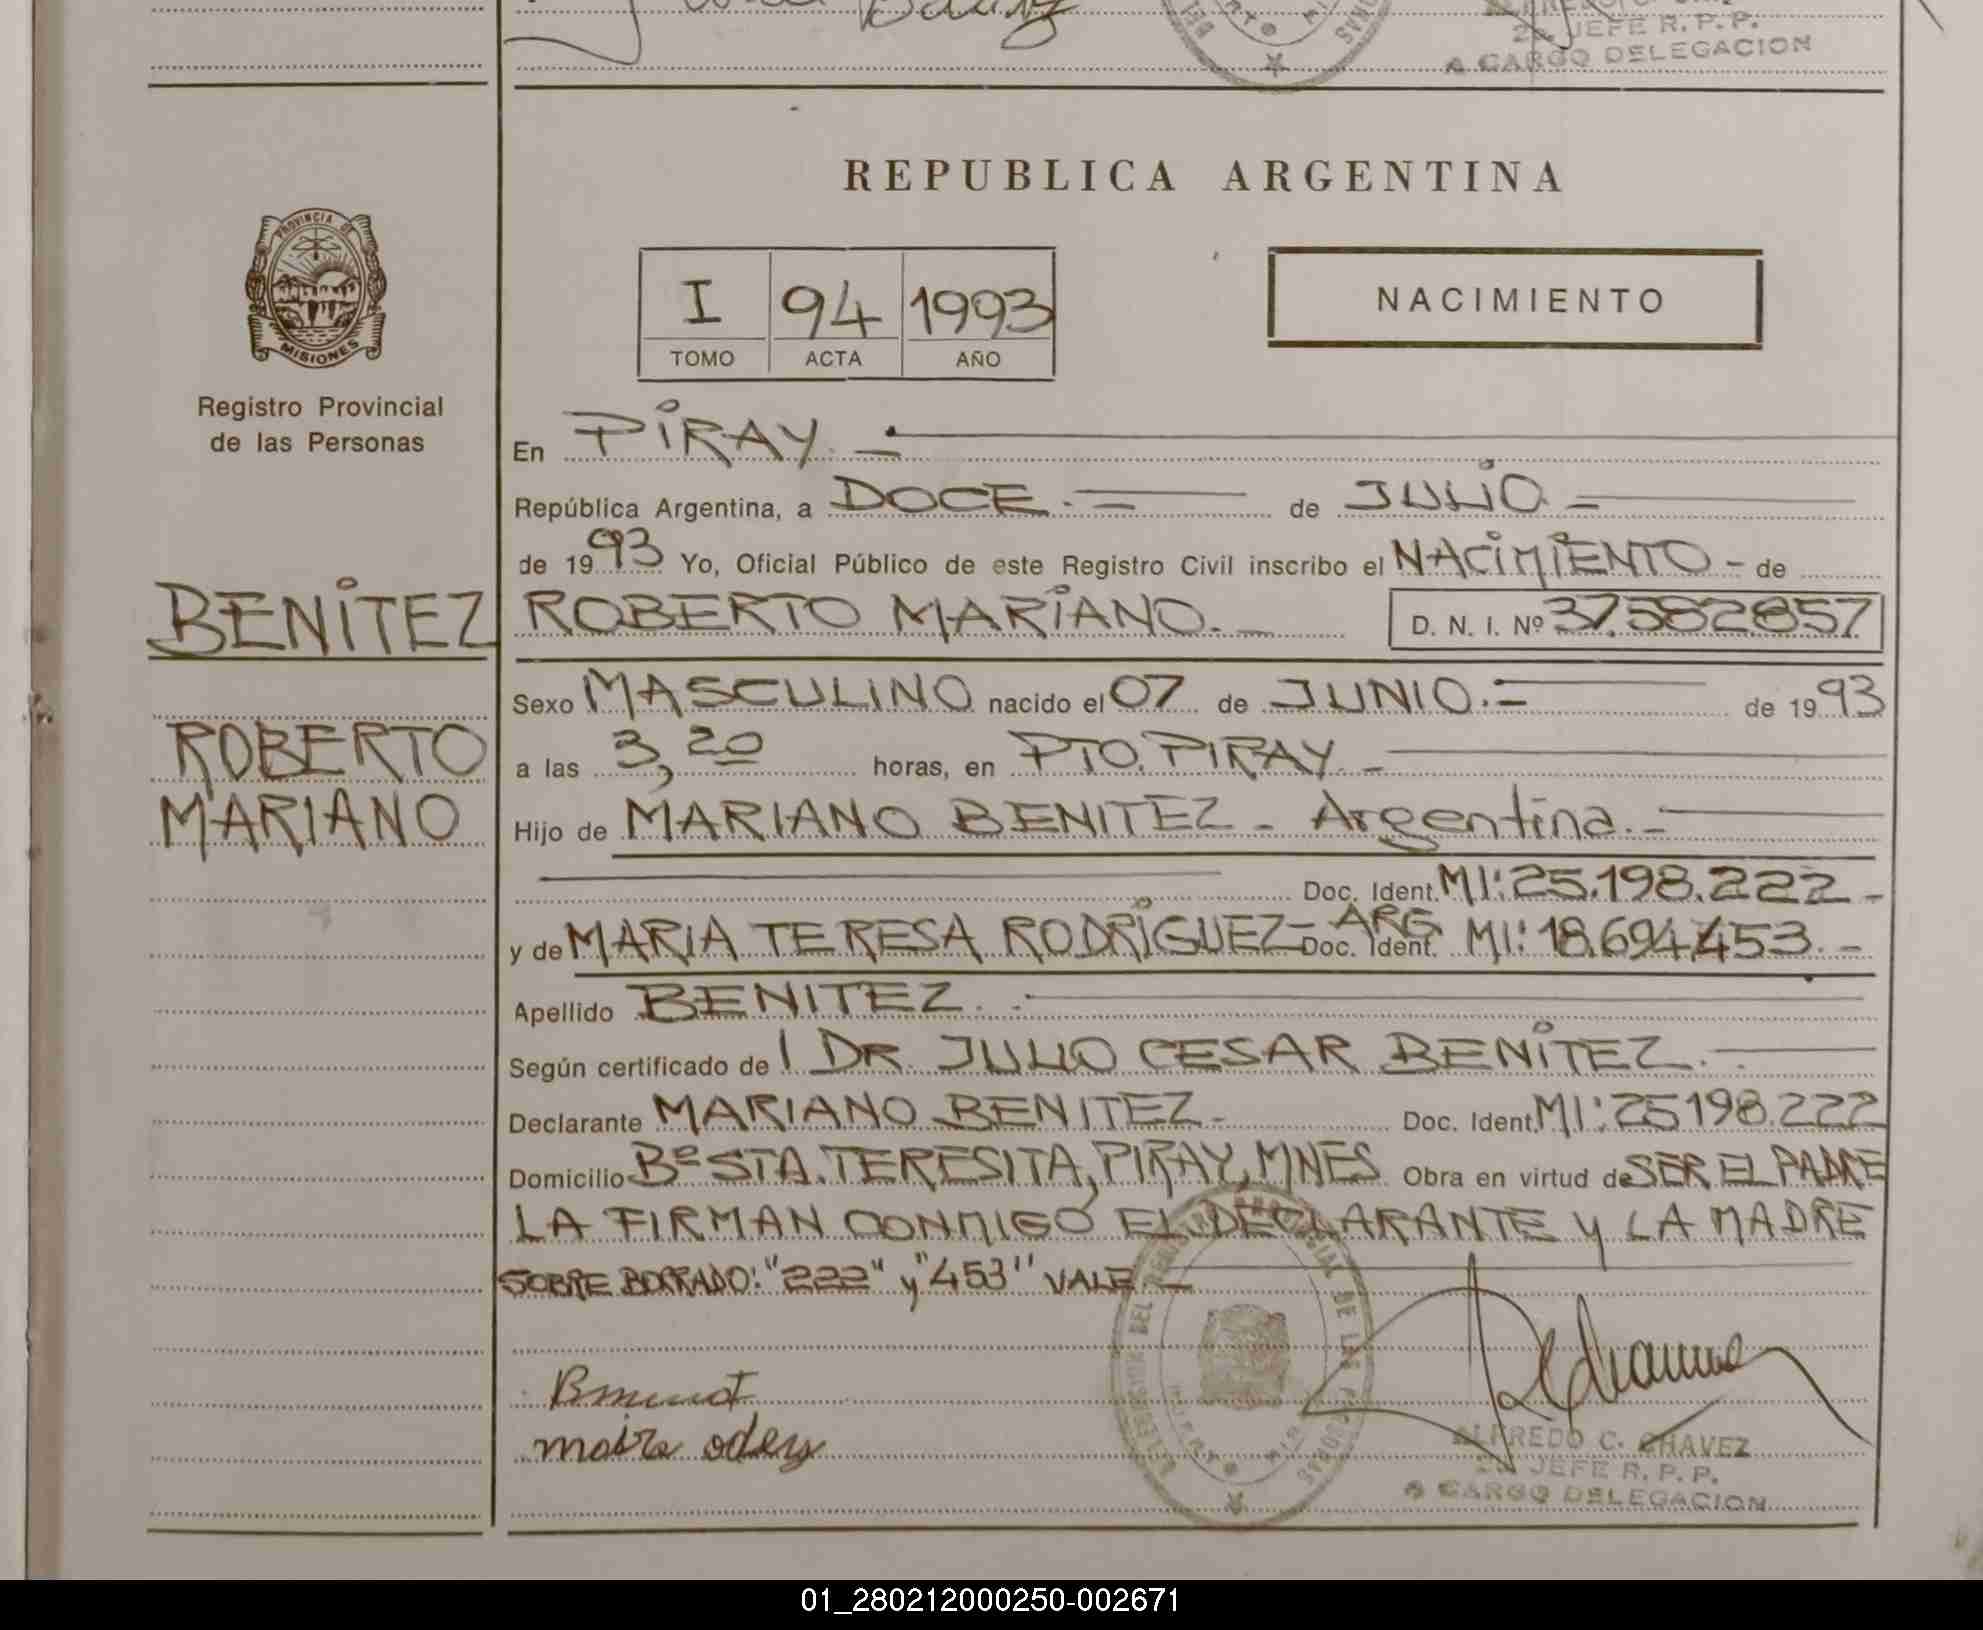 2do JEFE R. P. P.
A CARGO DELEGACION
REPUBLICA ARGENTINA
PROVINCIA DE
MISIONES
I 94 1993
TOMO ACTA AÑO
NACIMIENTO
Registro Provincial
de las Personas
En PIRAY.-
República Argentina, a DOCE.- de JULIO.-
de 1993 Yo, Oficial Público de este Registro Civil inscribo el NACIMIENTO - de
BENITEZ ROBERTO MARIANO.- D. N. I. Nº 37.582.857
Sexo MASCULINO nacido el 07 de JUNIO.- de 1993
ROBERTO
a las 3,20 horas, en PTO. PIRAY.-
MARIANO
Hijo de MARIANO BENITEZ - Argentina.-
Doc. Ident. MI:25.198.222.-
y de MARIA TERESA RODRÍGUEZ - ARG Doc. Ident. MI: 18.694.453.-
Apellido BENITEZ.-
Según certificado de l DR JULIO CESAR BENITEZ.-
Declarante MARIANO BENITEZ.- Doc. Ident. MI:25198.222
Domicilio Bº STA. TERESITA, PIRAY, MNES Obra en virtud de SER EL PADRE
LA FIRMAN CONMIGO EL DECLARANTE Y LA MADRE
SOBRE BORRADO: "222" y "453" VALE.-
ALFREDO C. CHAVEZ
2do JEFE R. P. P.
A CARGO DELEGACION
01_280212000250-002671